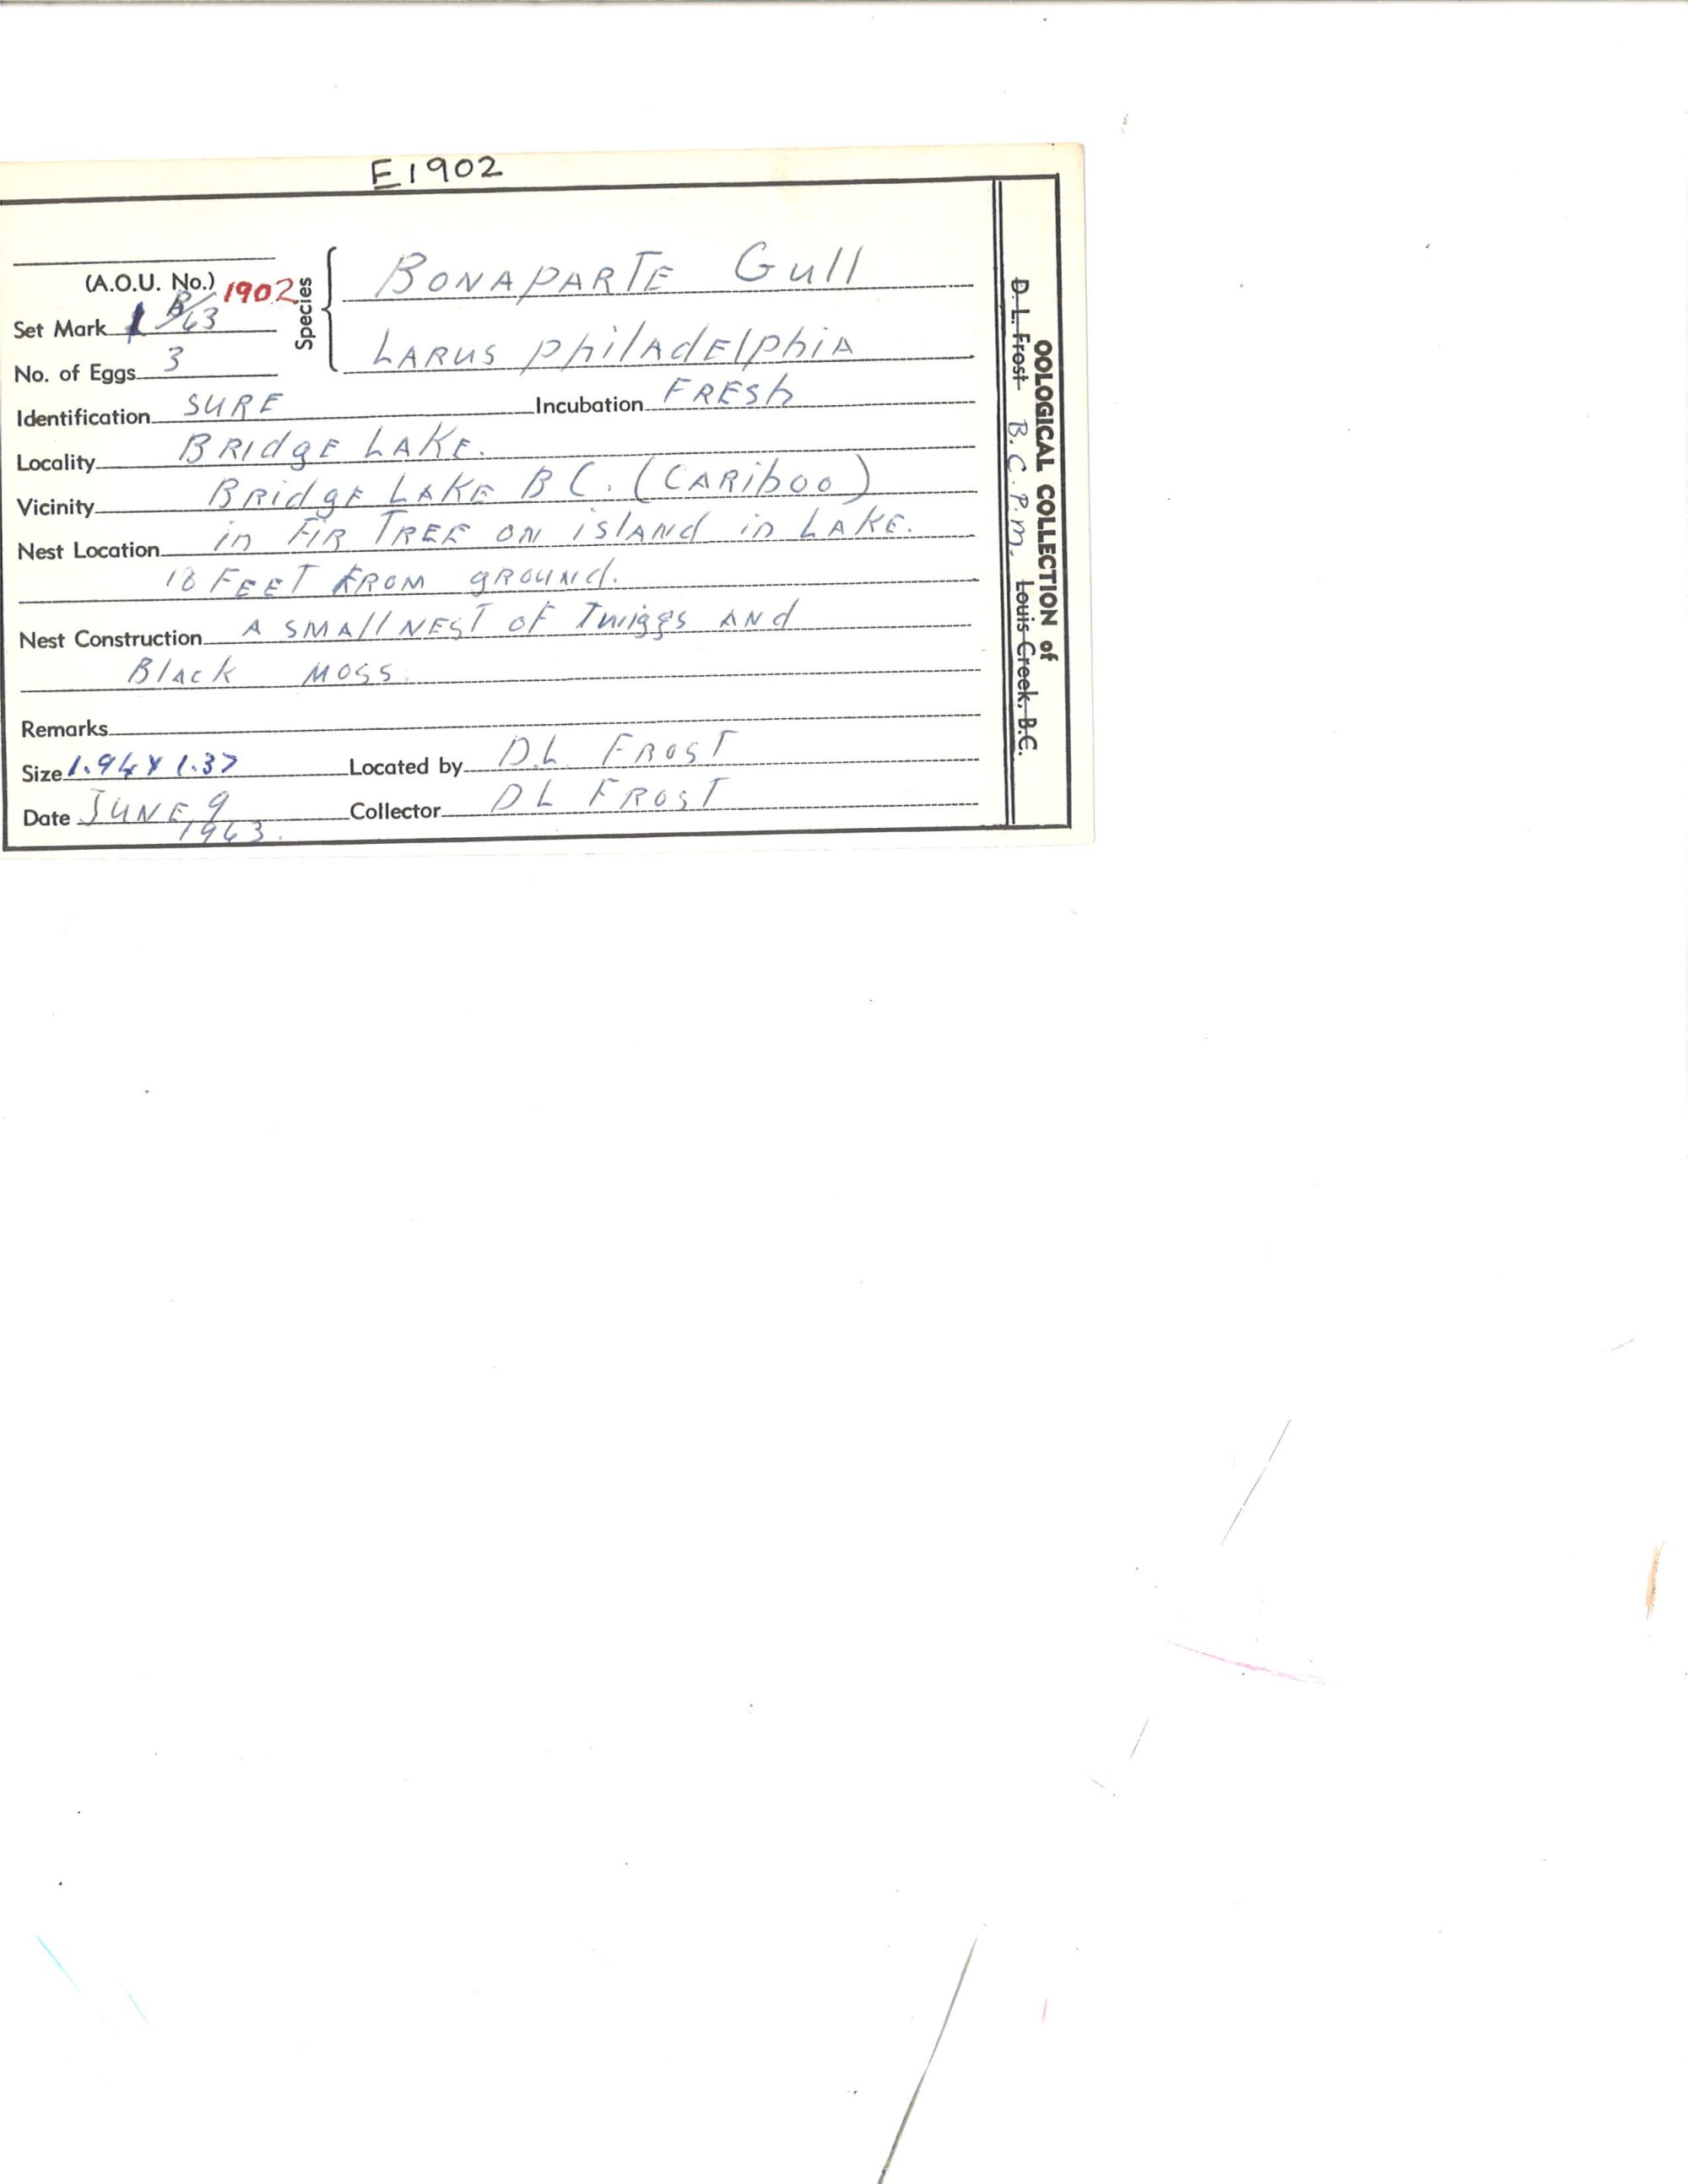 E1902
(A.O.U. No.) 1902
Species
BONAPARTE Gull
Set Mark 1 B/63
LARUS philAdElphiA
No. of Eggs 3
Identification SURE Incubation FRESh
Locality BRIdgE LAKE.
Vicinity BRidgE LAKE B C. (CARiboo)
Nest Location in FIR TREE ON islANd in LAKE.
18 FEET FROM gROUNd.
Nest Construction A SMAll NEST OF Twiggs ANd
BlAck MOSS.
Remarks
Size 1.94 X 1.37 Located by D.L. FROST
Date JUNE 9 Collector D L FROST
1963.
OOLOGICAL COLLECTION of
D. L. Frost B.C.P.M. Louis Creek, B.C.